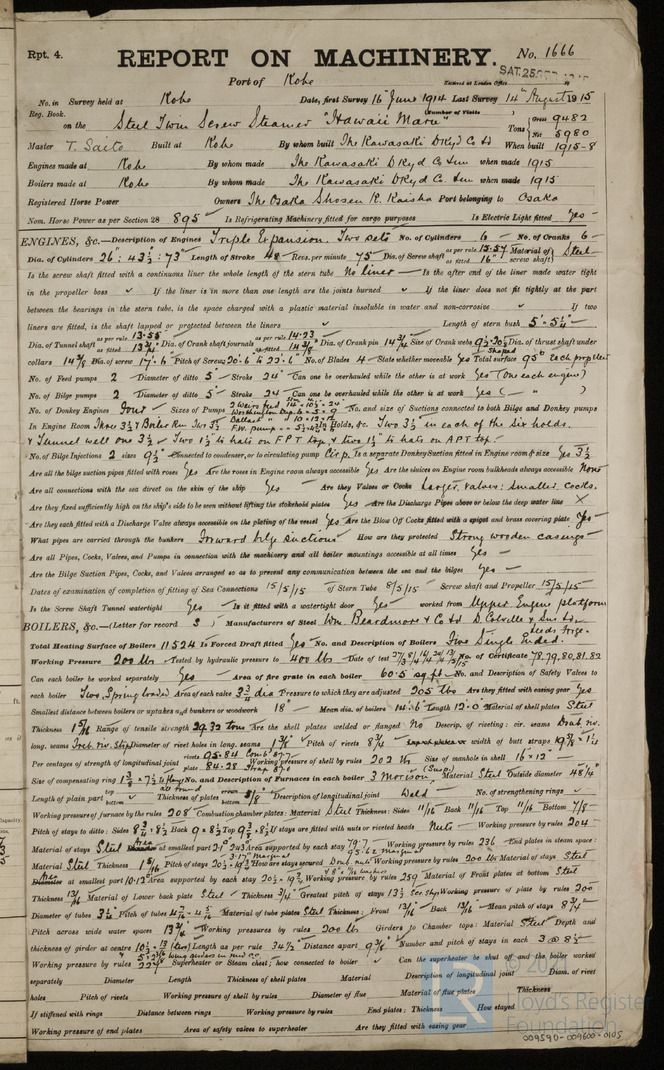 Rpt. 4.
REPORT ON MACHINERY. No. 1666
Port of Kobe
Received at London Office SAT. 25
No. in Survey held at Kobe Date, first Survey 16th June 1914 Last Survey 14th August 1915
Reg. Book. (Number of Visits
on the Steel Twin Screw Steamer "Hawaii Maru" Tons Gross 9482
Net 5980
Master T. Saito Built at Kobe By whom built The Kawasaki DKyd Co Ltd When built 1915-8
Engines made at Kobe By whom made The Kawasaki DKyd Co. Lim when made 1915
Boilers made at Kobe By whom made The Kawasaki DKyd Co. Lim when made 1915
Registered Horse Power Owners The Osaka Shosen K. Kaisha Port belonging to Osaka
Nom. Horse Power as per Section 28 895 Is Refrigerating Machinery fitted for cargo purposes Is Electric Light fitted Yes
ENGINES, &c.—Description of Engines Triple Expansion. Two sets No. of Cylinders 6 No. of Cranks 6
Dia. of Cylinders 26" : 43½ : 73" Length of Stroke 48 Revs. per minute 75 Dia. of Screw shaft as per rule 15.57 as fitted 16" Material of screw shaft Steel
Is the screw shaft fitted with a continuous liner the whole length of the stern tube No liner Is the after end of the liner made water tight
in the propeller boss ✓ If the liner is in more than one length are the joints burned ✓ If the liner does not fit tightly at the part
between the bearings in the stern tube, is the space charged with a plastic material insoluble in water and non-corrosive ✓ If two
liners are fitted, is the shaft lapped or protected between the liners ✓ Length of stern bush 5'-5¼"
Dia. of Tunnel shaft as per rule 13.55 as fitted Dia. of Crank shaft journals as per rule 14.23 as fitted 14¾ Dia. of Crank pin 14¾ Size of Crank webs Dia. of thrust shaft under
collars 14⅜ Dia. of screw 17'.6" Pitch of Screw 20'.6 to 22'.6" No. of Blades 4 State whether moveable Yes Total surface 95 each propeller
No. of Feed pumps 2 Diameter of ditto 5" Stroke 24" Can one be overhauled while the other is at work Yes (One each engine)
No. of Bilge pumps 2 Diameter of ditto 5" Stroke 24" Can one be overhauled while the other is at work Yes ( " " )
No. of Donkey Engines Four Sizes of Pumps 2 Weirs feed No. and size of Suctions connected to both Bilge and Donkey pumps
In Engine Room Three 3½ & Boiler Rm Two 3½ In Holds, &c. Two 3½ in each of the six holds.
& Tunnel well one 3½ Two 1½ to hats on F.P.T. top, & two 1½ to hats on A.P.T. top.
No. of Bilge Injections 2 sizes 9½ Connected to condenser, or to circulating pump Cir p. Is a separate Donkey Suction fitted in Engine room & size Yes 3½
Are all the bilge suction pipes fitted with roses Yes Are the roses in Engine room always accessible Yes Are the sluices on Engine room bulkheads always accessible None
Are all connections with the sea direct on the skin of the ship Yes Are they Valves or Cocks Larger, valves: smaller, cocks.
Are they fixed sufficiently high on the ship's side to be seen without lifting the stokehold plates Yes Are the Discharge Pipes above or below the deep water line ×
Are they each fitted with a Discharge Valve always accessible on the plating of the vessel Yes Are the Blow Off Cocks fitted with a spigot and brass covering plate Yes
What pipes are carried through the bunkers Forward bilge suctions How are they protected Strong wooden casings
Are all Pipes, Cocks, Valves, and Pumps in connection with the machinery and all boiler mountings accessible at all times Yes
Are the Bilge Suction Pipes, Cocks, and Valves arranged so as to prevent any communication between the sea and the bilges Yes
Dates of examination of completion of fitting of Sea Connections 15/5/15 of Stern Tube 8/5/15 Screw shaft and Propeller 15/5/15
Is the Screw Shaft Tunnel watertight Yes Is it fitted with a watertight door Yes worked from Upper Engine platform
BOILERS, &c.—(Letter for record S) Manufacturers of Steel Wm. Beardmore & Co Ltd D. Colville & Sons Ld Leeds Forge.
Total Heating Surface of Boilers 11524 Is Forced Draft fitted Yes No. and Description of Boilers Five Single Ended.
Working Pressure 200 lbs Tested by hydraulic pressure to 400 lbs Date of test No. of Certificate 78,79,80,81,82
Can each boiler be worked separately Yes Area of fire grate in each boiler 60.5 sq ft No. and Description of Safety Valves to
each boiler Two, Spring loaded Area of each valve 3¾ dia Pressure to which they are adjusted 205 lbs Are they fitted with easing gear Yes
Smallest distance between boilers or uptakes and bunkers or woodwork 18" Mean dia. of boilers 14'.6 Length 12'.0 Material of shell plates Steel
Thickness 15/16 Range of tensile strength 29.32 tons Are the shell plates welded or flanged No Descrip. of riveting: cir. seams Doub riv.
long. seams Treb. riv. Strp Diameter of rivet holes in long. seams 1⅜ Pitch of rivets 8¾ width of butt straps
Per centages of strength of longitudinal joint rivets 95.84 plate 84.28 Working pressure of shell by rules 202 lbs Size of manhole in shell 16" × 12"
Size of compensating ring No. and Description of Furnaces in each boiler 3 Morison Material Steel Outside diameter 48¼"
Length of plain part top bottom ✓ Thickness of plates crown bottom 5/8 Description of longitudinal joint Weld No. of strengthening rings
Working pressure of furnace by the rules 208 Combustion chamber plates: Material Steel Thickness: Sides 11/16 Back 11/16 Top 11/16 Bottom 7/8
Pitch of stays to ditto: Sides 8¾ × 8½ Back 9 × 8½ Top 9⅜ × 8½ If stays are fitted with nuts or riveted heads Nuts Working pressure by rules 204
Material of stays Steel Area at smallest part Area supported by each stay 79.7 Working pressure by rules 236 End plates in steam space:
Material Steel Thickness 15/16 Pitch of stays How are stays secured Doub nuts Working pressure by rules 200 lbs Material of stays Steel
Area at smallest part 10.12 Area supported by each stay Working pressure by rules 259 Material of Front plates at bottom Steel
Thickness 13/16 Material of Lower back plate Steel Thickness ¾ Greatest pitch of stays 13½ Working pressure of plate by rules 200
Diameter of tubes 3¼ Pitch of tubes Material of tube plates Steel Thickness: Front 13/16 Back 13/16 Mean pitch of stays 8¾
Pitch across wide water spaces 13¾ Working pressures by rules 200 lbs Girders to Chamber tops: Material Steel Depth and
thickness of girder at centre Length as per rule 34½ Distance apart 9⅜ Number and pitch of stays in each 3 @ 8½
Working pressure by rules Superheater or Steam chest; how connected to boiler Can the superheater be shut off and the boiler worked
separately Diameter Length Thickness of shell plates Material Description of longitudinal joint Diam. of rivet
holes Pitch of rivets Working pressure of shell by rules Diameter of flue Material of flue plates Thickness
If stiffened with rings Distance between rings Working pressure by rules End plates: Thickness How stayed
Working pressure of end plates Area of safety valves to superheater Are they fitted with easing gear
© 2021
Lloyd's Register
Foundation
009590-009600-0105